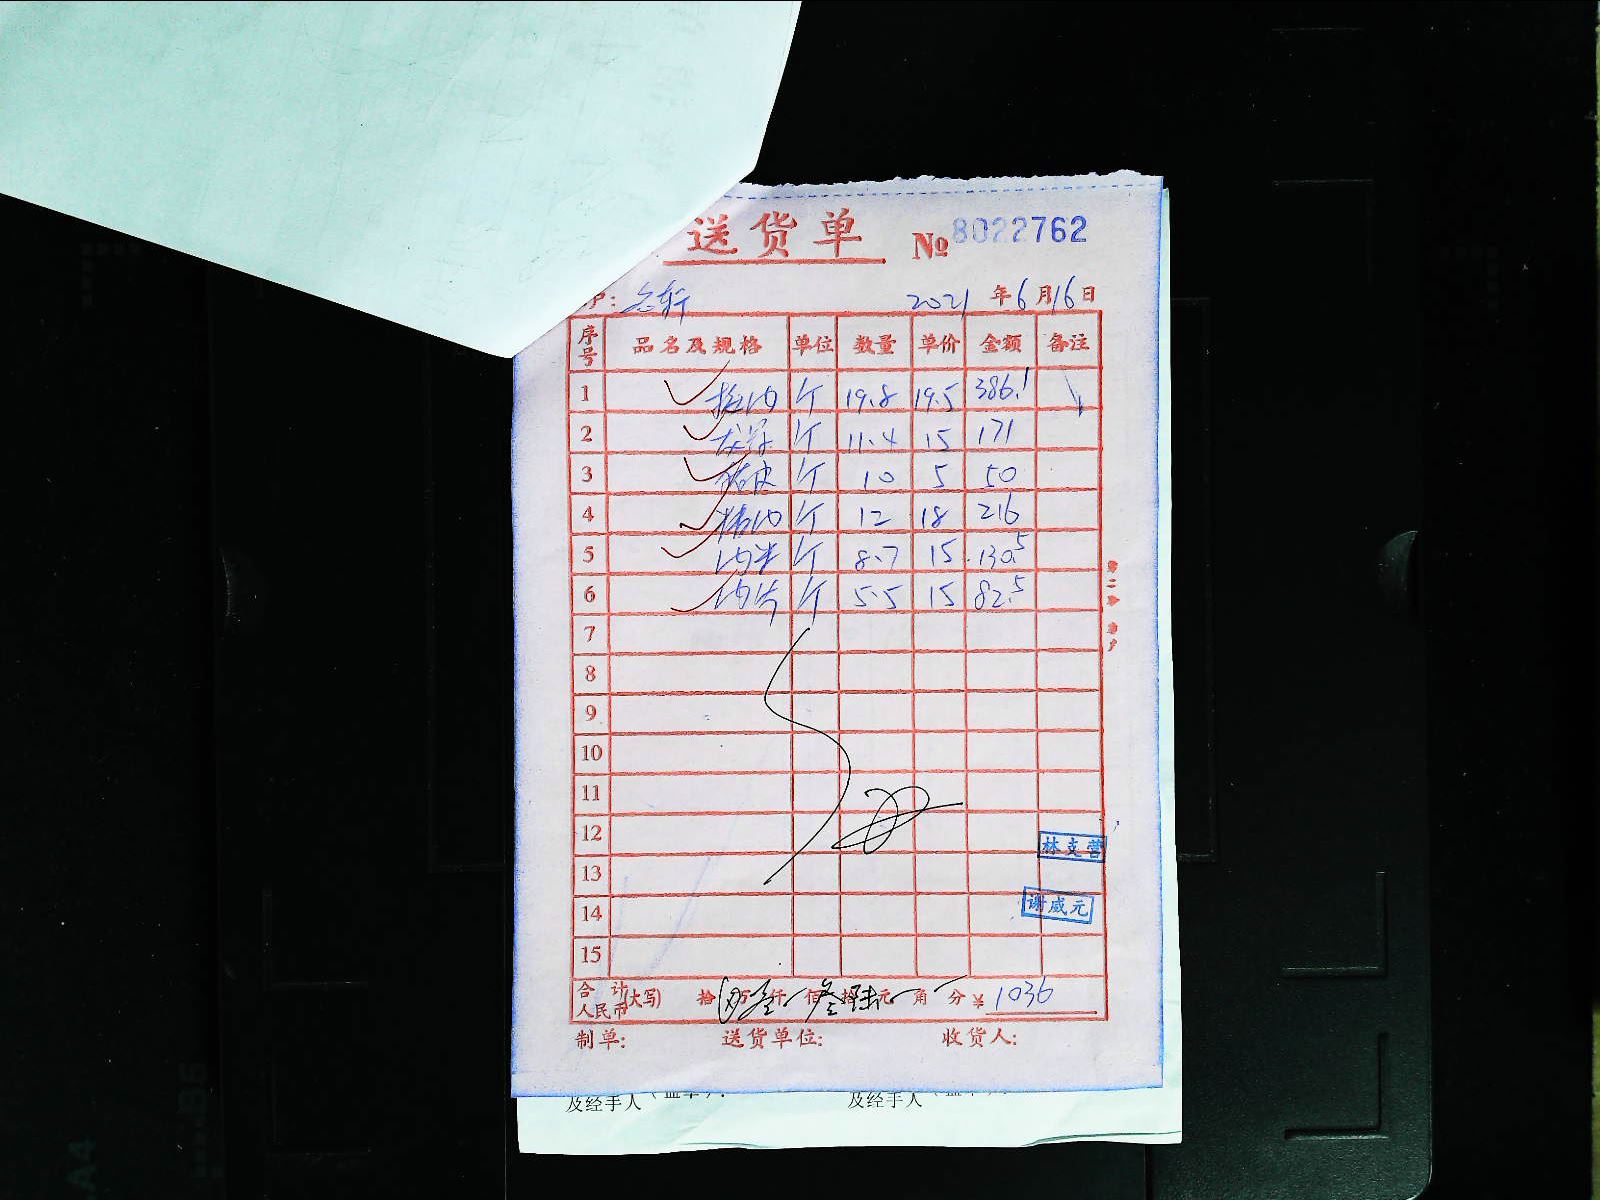 送货单 № 8022762
户: 2021年6月16日
序号 品名及规格 单位 数量 单价 金额 备注
1 斤 19.8 19.5 386.1
2 龙骨 斤 11.4 15 171
3 猪皮 斤 10 5 50
4 精肉 斤 12 18 216
5 肉半 斤 8.7 15 130.5
6 肉片 斤 5.5 15 82.5
7
8
9
10
11
12
林支营
13
14
谢威元
15
合计人民币(大写) 拾万壹仟佰叁拾陆元角分 ¥ 1036
制单: 送货单位: 收货人:
及经手人(盖章): 及经手人(盖章):